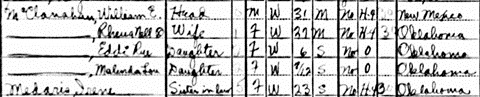 McClanahan, William E. Head M W 31 M No H-4 New Mexico
Rheus Nell B Wife 1 F W 27 M No H-4 Oklahoma
Edde Rue Daughter F W 6 S No 0 Oklahoma
Malinda Lou Daughter F W 7/12 S No 0 Oklahoma
Medaris, Irene Sister in law 5 F W 23 S No H-4 Oklahoma